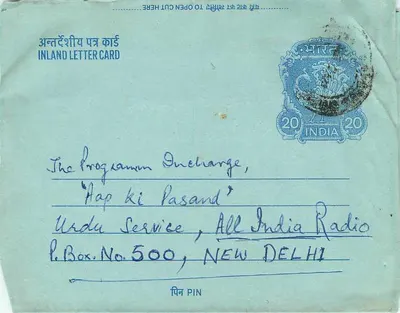 यहाँ काट कर खोलिए TO OPEN CUT HERE
अन्तर्देशीय पत्र कार्ड
INLAND LETTER CARD
भारत
20 20
INDIA
The Programm Incharge,
'Aap ki Pasand'
Urdu Service, All India Radio
P. Box. No. 500, NEW DELHI
पिन PIN